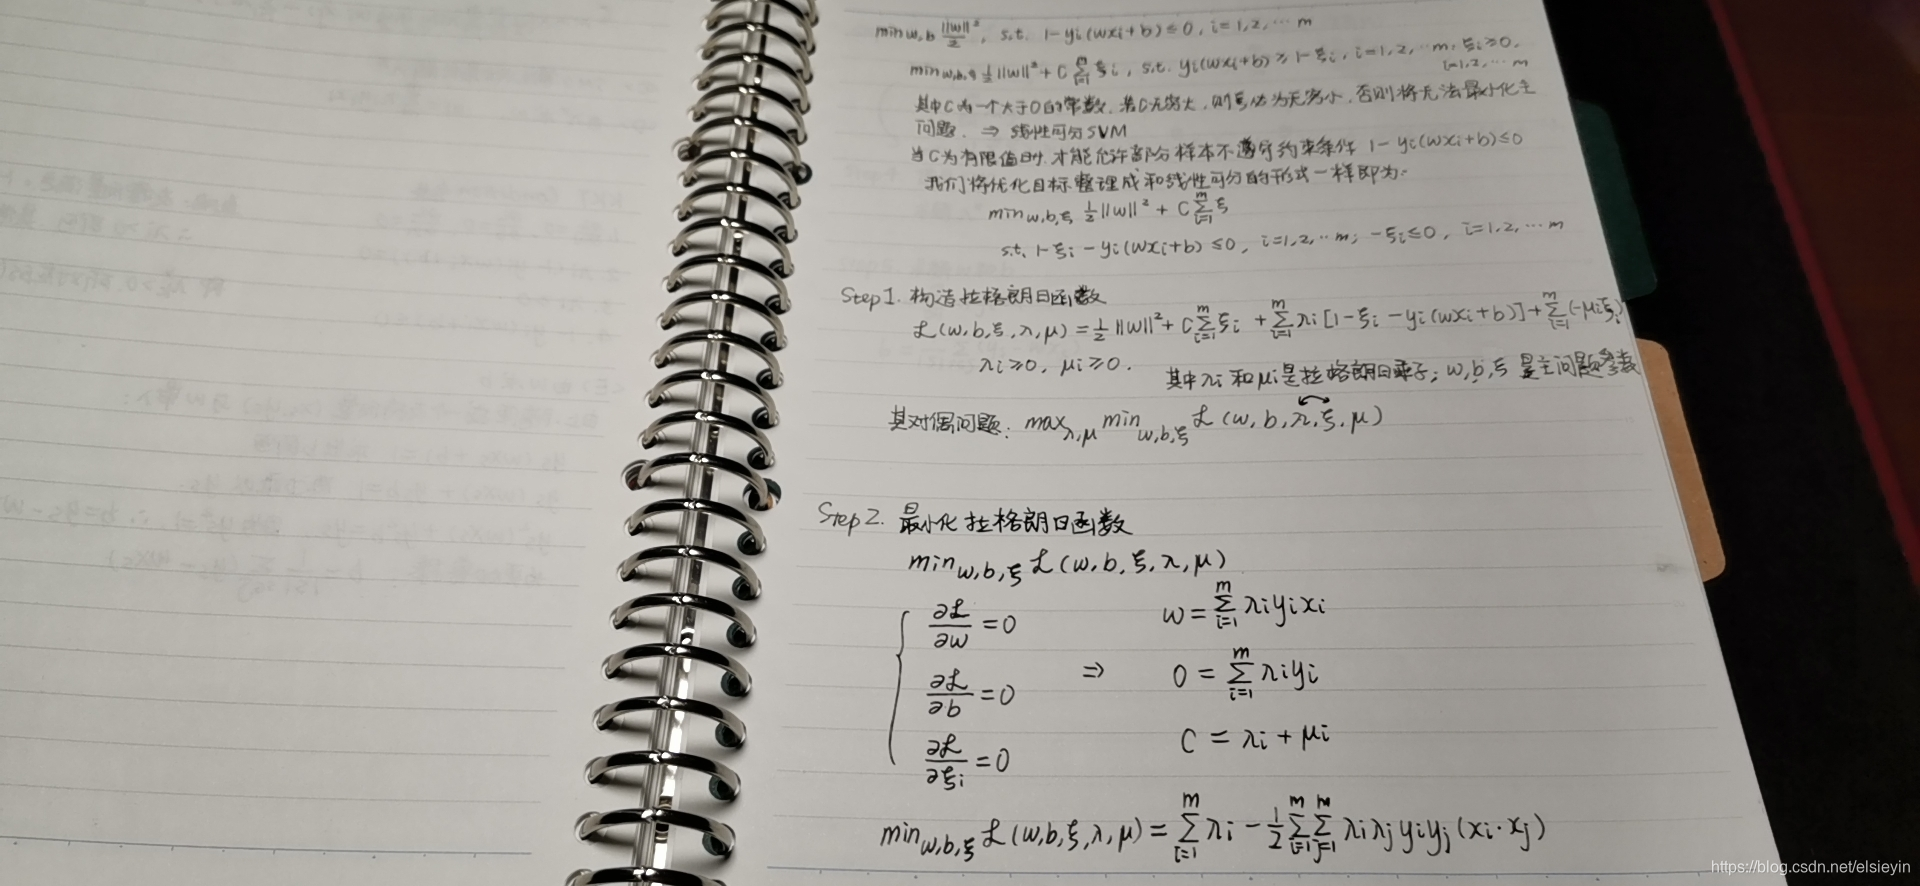 min w,b ||w||²/2, s.t. 1-yi(wxi+b)≤0, i=1,2,…m
min w,b,ξ ½||w||²+C∑_{i=1}^{m}ξi, s.t. yi(wxi+b)≥1-ξi, i=1,2,…m, ξi≥0,
i=1,2,…m
其中C为一个大于0的常数,若C无穷大,则ξi必为无穷小,否则将无法最小化主
问题. ⇒ 线性可分SVM
当C为有限值时,才能允许部分样本不遵守约束条件 1-yi(wxi+b)≤0
我们将优化目标整理成和线性可分的形式一样即为:
min w,b,ξ ½||w||²+C∑_{i=1}^{m}ξ
s.t. 1-ξi-yi(wxi+b)≤0, i=1,2,…m; -ξi≤0, i=1,2,…m
Step1. 构造拉格朗日函数
ℒ(w,b,ξ,λ,μ)=½||w||²+C∑_{i=1}^{m}ξi+∑_{i=1}^{m}λi[1-ξi-yi(wxi+b)]+∑_{i=1}^{m}(-μiξi)
λi≥0, μi≥0.
其中λi和μi是拉格朗日乘子;w,b,ξ是主问题参数
其对偶问题: max λ,μ min w,b,ξ ℒ(w,b,λ,ξ,μ)
Step2. 最小化拉格朗日函数
min w,b,ξ ℒ(w,b,ξ,λ,μ)
{ ∂ℒ/∂w=0 w=∑_{i=1}^{m}λiyixi
∂ℒ/∂b=0 ⇒ 0=∑_{i=1}^{m}λiyi
∂ℒ/∂ξi=0 C=λi+μi
min w,b,ξ ℒ(w,b,ξ,λ,μ)=∑_{i=1}^{m}λi-½∑_{i=1}^{m}∑_{j=1}^{m}λiλjyiyj(xi·xj)
https://blog.csdn.net/elsieyin